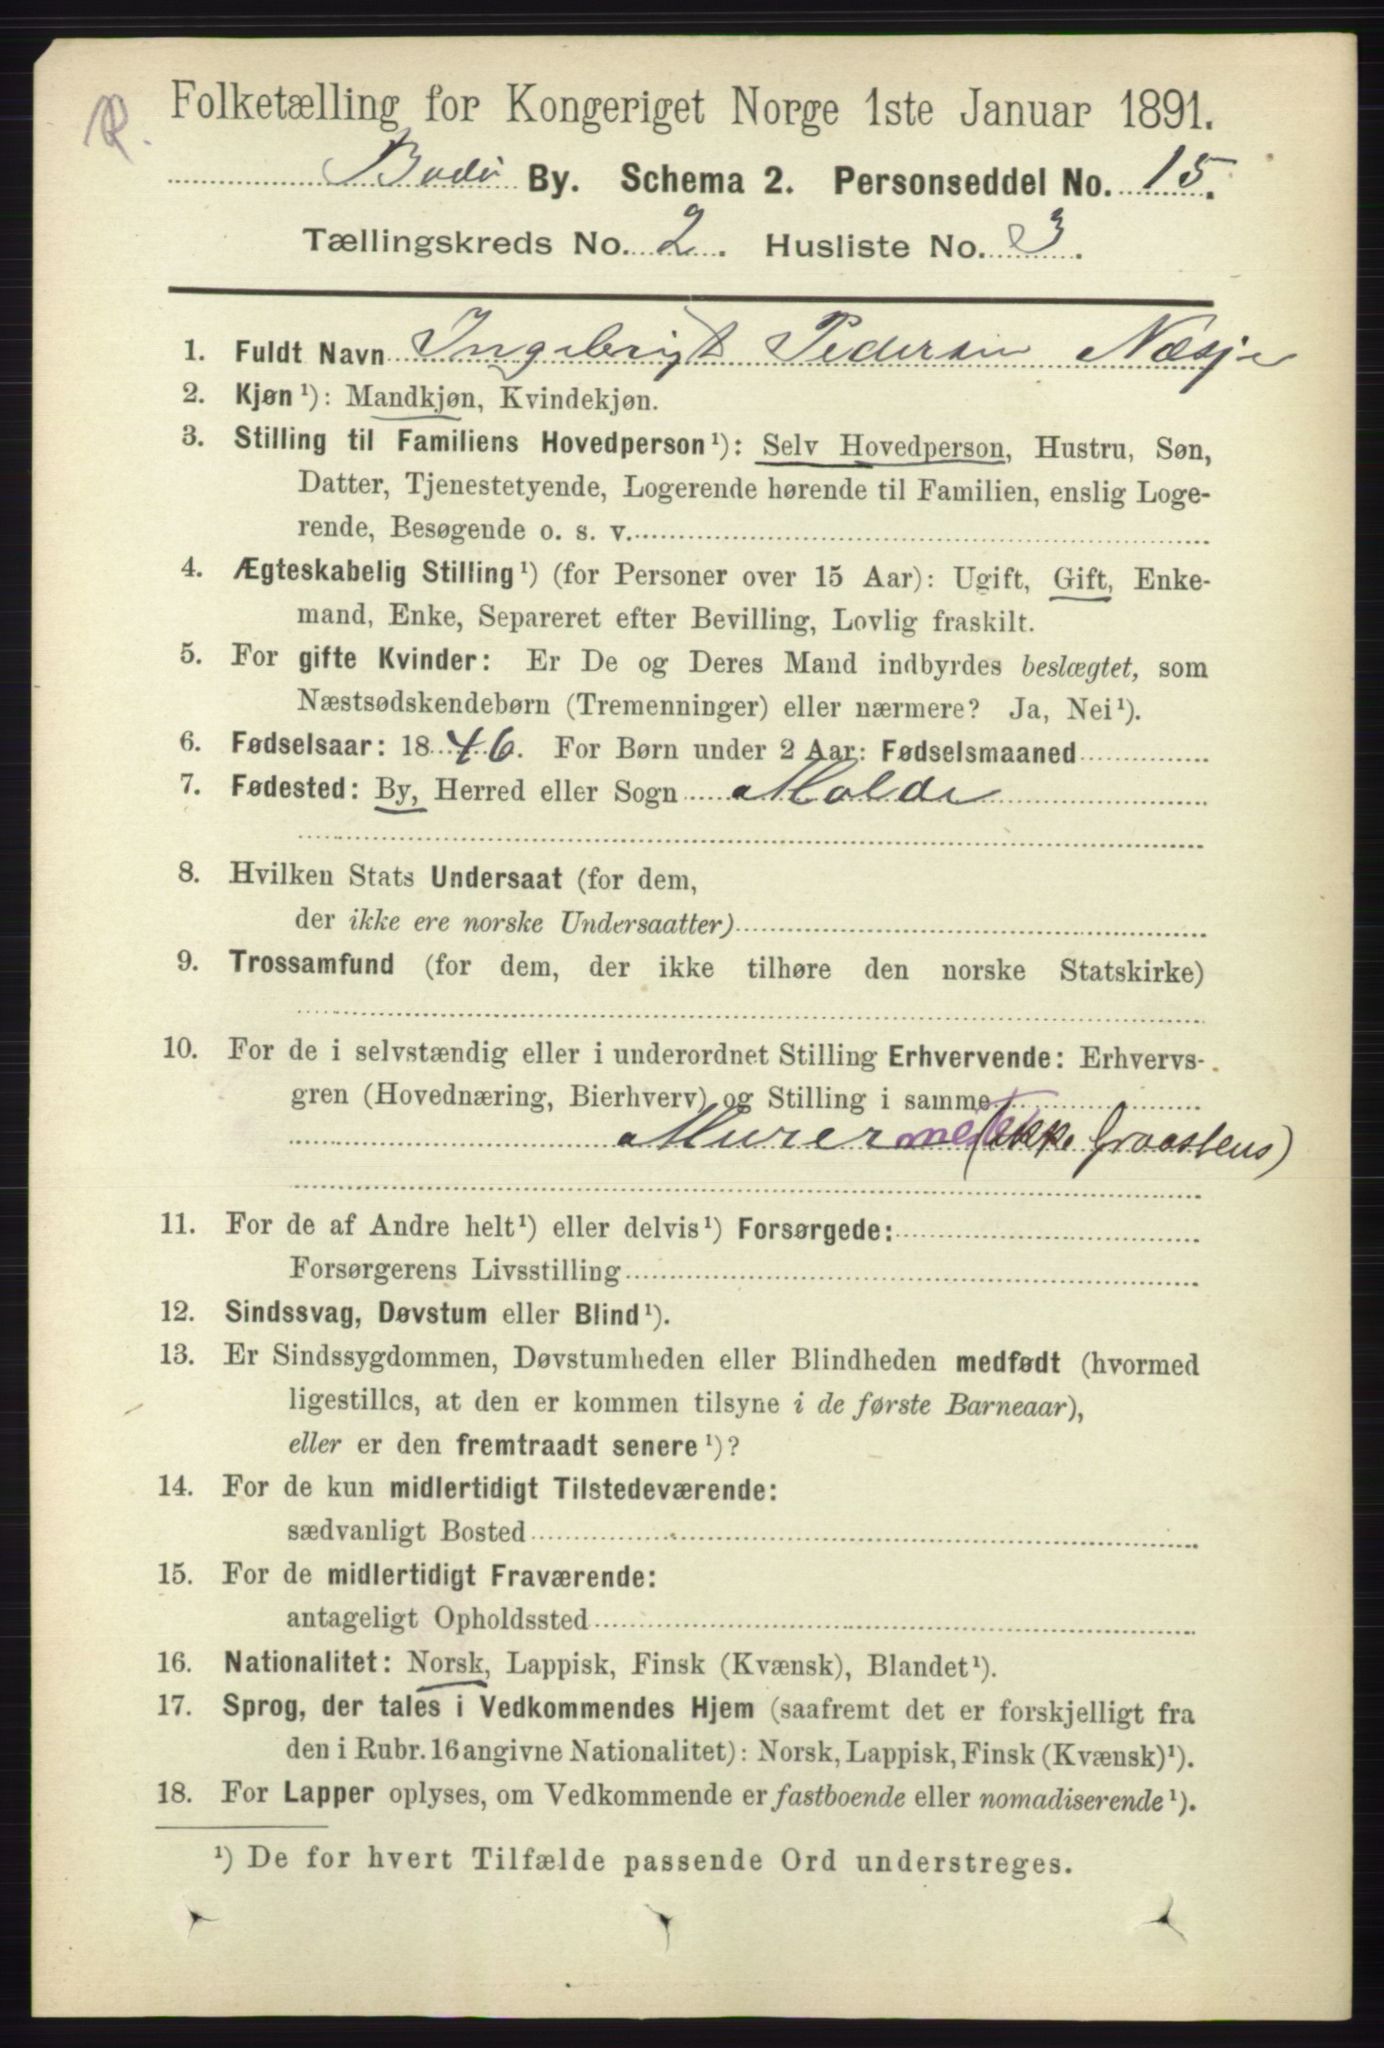 Folketælling for Kongeriget Norge 1ste Januar 1891.
Bodø By. Schema 2. Personseddel No. 15.
Tællingskreds No. 2. Husliste No. 3.
1. Fuldt Navn Ingebrigt Pedersen Næsje
2. Kjøn¹): Mandkjøn, Kvindekjøn.
3. Stilling til Familiens Hovedperson¹): Selv Hovedperson, Hustru, Søn,
Datter, Tjenestetyende, Logerende hørende til Familien, enslig Loge-
rende, Besøgende o. s. v.
4. Ægteskabelig Stilling¹) (for Personer over 15 Aar): Ugift, Gift, Enke-
mand, Enke, Separeret efter Bevilling, Lovlig fraskilt.
5. For gifte Kvinder: Er De og Deres Mand indbyrdes beslægtet, som
Næstsødskendebørn (Tremenninger) eller nærmere? Ja, Nei¹).
6. Fødselsaar: 1846. For Børn under 2 Aar: Fødselsmaaned
7. Fødested: By, Herred eller Sogn Molde
8. Hvilken Stats Undersaat (for dem,
der ikke ere norske Undersaatter)
9. Trossamfund (for dem, der ikke tilhøre den norske Statskirke)
10. For de i selvstændig eller i underordnet Stilling Erhvervende: Erhvervs-
gren (Hovednæring, Bierhverv) og Stilling i samme
Murermest (ikke Graastens)
11. For de af Andre helt¹) eller delvis¹) Forsørgede:
Forsørgerens Livsstilling
12. Sindssvag, Døvstum eller Blind¹).
13. Er Sindssygdommen, Døvstumheden eller Blindheden medfødt (hvormed
ligestilles, at den er kommen tilsyne i de første Barneaar),
eller er den fremtraadt senere¹)?
14. For de kun midlertidigt Tilstedeværende:
sædvanligt Bosted
15. For de midlertidigt Fraværende:
antageligt Opholdssted
16. Nationalitet: Norsk, Lappisk, Finsk (Kvænsk), Blandet¹).
17. Sprog, der tales i Vedkommendes Hjem (saafremt det er forskjelligt fra
den i Rubr. 16 angivne Nationalitet): Norsk, Lappisk, Finsk (Kvænsk)¹).
18. For Lapper oplyses, om Vedkommende er fastboende eller nomadiserende¹).
¹) De for hvert Tilfælde passende Ord understreges.